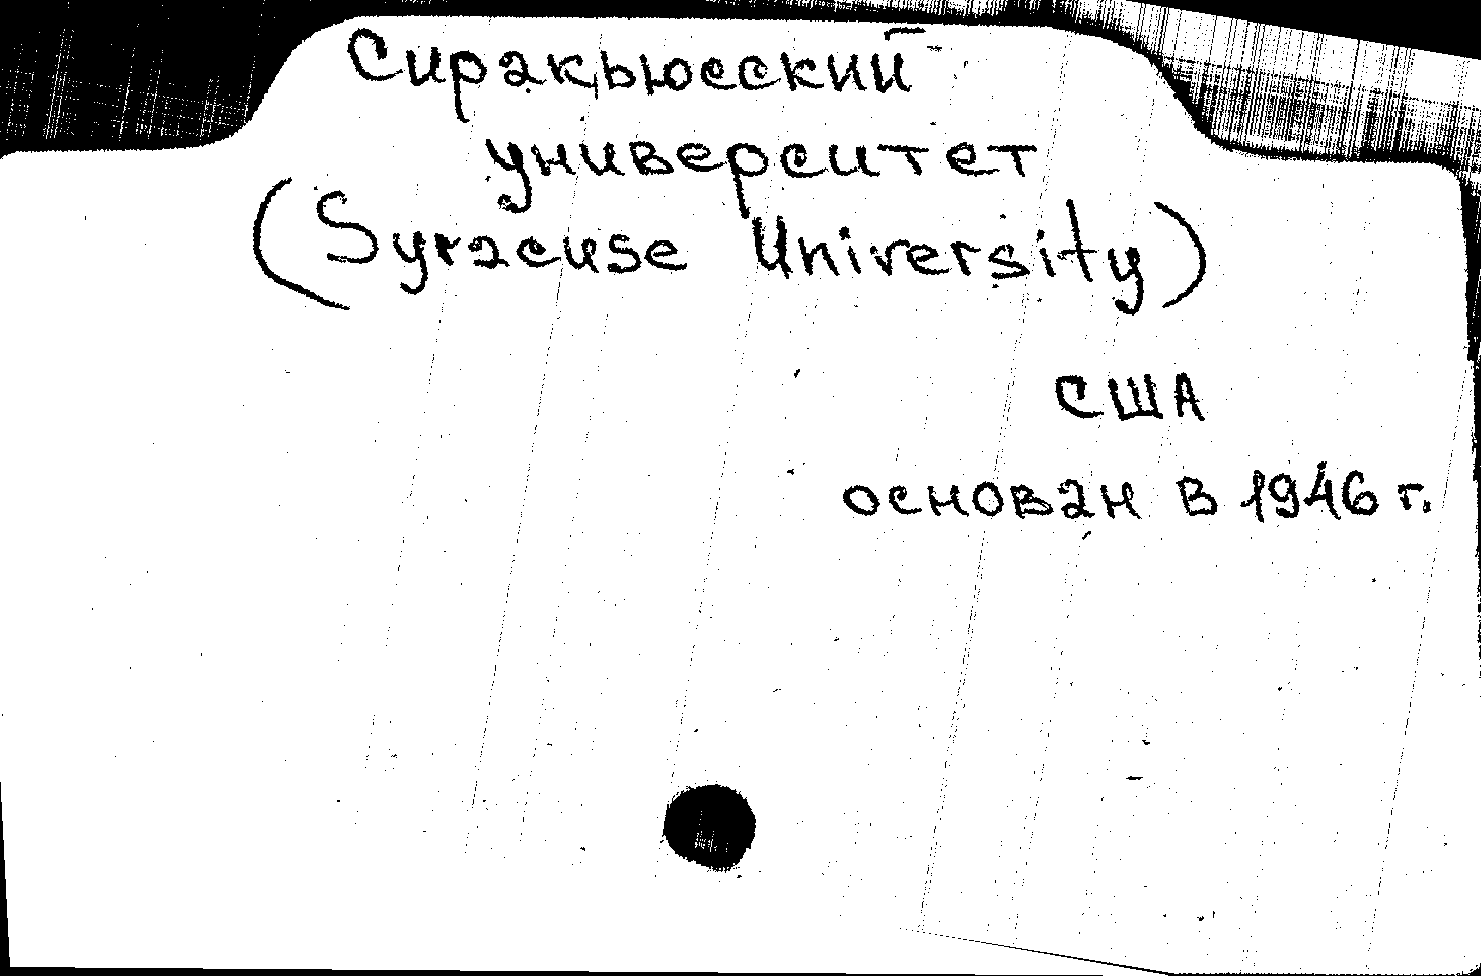 Сиракьюсский
университет
(Syracuse University)
США
основан в 1946 г.